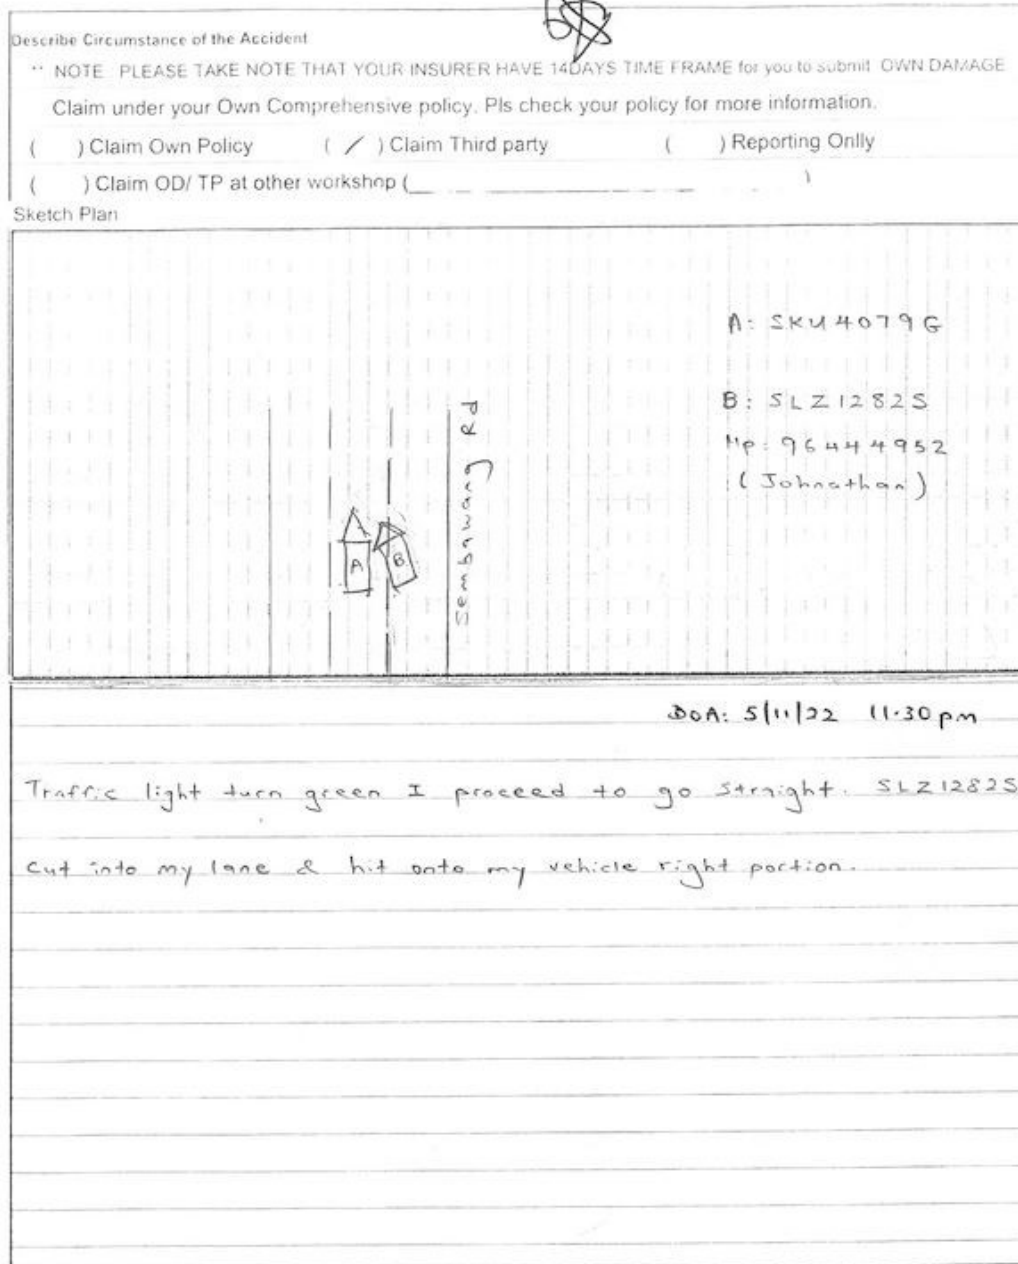 Describe Circumstance of the Accident
** NOTE PLEASE TAKE NOTE THAT YOUR INSURER HAVE 14DAYS TIME FRAME for you to submit OWN DAMAGE
Claim under your Own Comprehensive policy. Pls check your policy for more information.
( ) Claim Own Policy ( / ) Claim Third party ( ) Reporting Onlly
( ) Claim OD/ TP at other workshop ( )
Sketch Plan
A: SKU4079G
B: SLZ1282S
Hp: 96444952
(Johnathan)
Sembawang Rd
A
B
DOA: 5/11/22 11.30pm
Traffic light turn green I proceed to go straight. SLZ1282S
cut into my lane & hit onto my vehicle right portion.